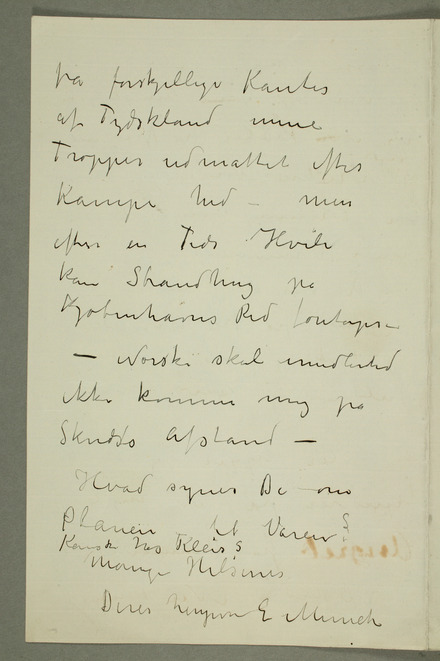 fra forskjellige Kanter
af Tydskland mine
Tropper udmattet efter
Kampe hid – men
efter en Tids Hvile
kan Strandhug på
Kjøbenhavns Red foretages
– Norske skal imidlertid
ikke komme mig på
Skudds Afstand –
Hvad synes De om
Planen til Våren?
Kanske hos Kleis?
Mange Hilsener
Deres hengivne E Munch